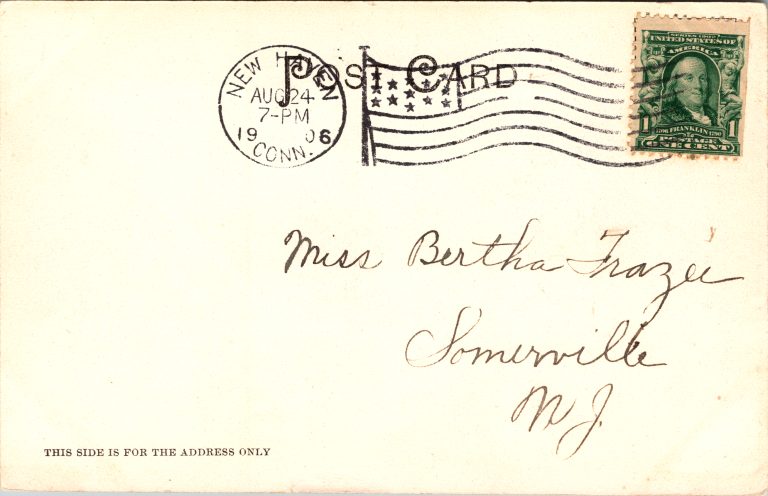 POST CARD
NEW HAVEN
AUG 24
7-PM
1906
CONN.
SERIES 1902
UNITED STATES OF
AMERICA
1706 FRANKLIN 1790
1 POSTAGE 1
ONE CENT
Miss Bertha Frazee
Somerville
N J.
THIS SIDE IS FOR THE ADDRESS ONLY